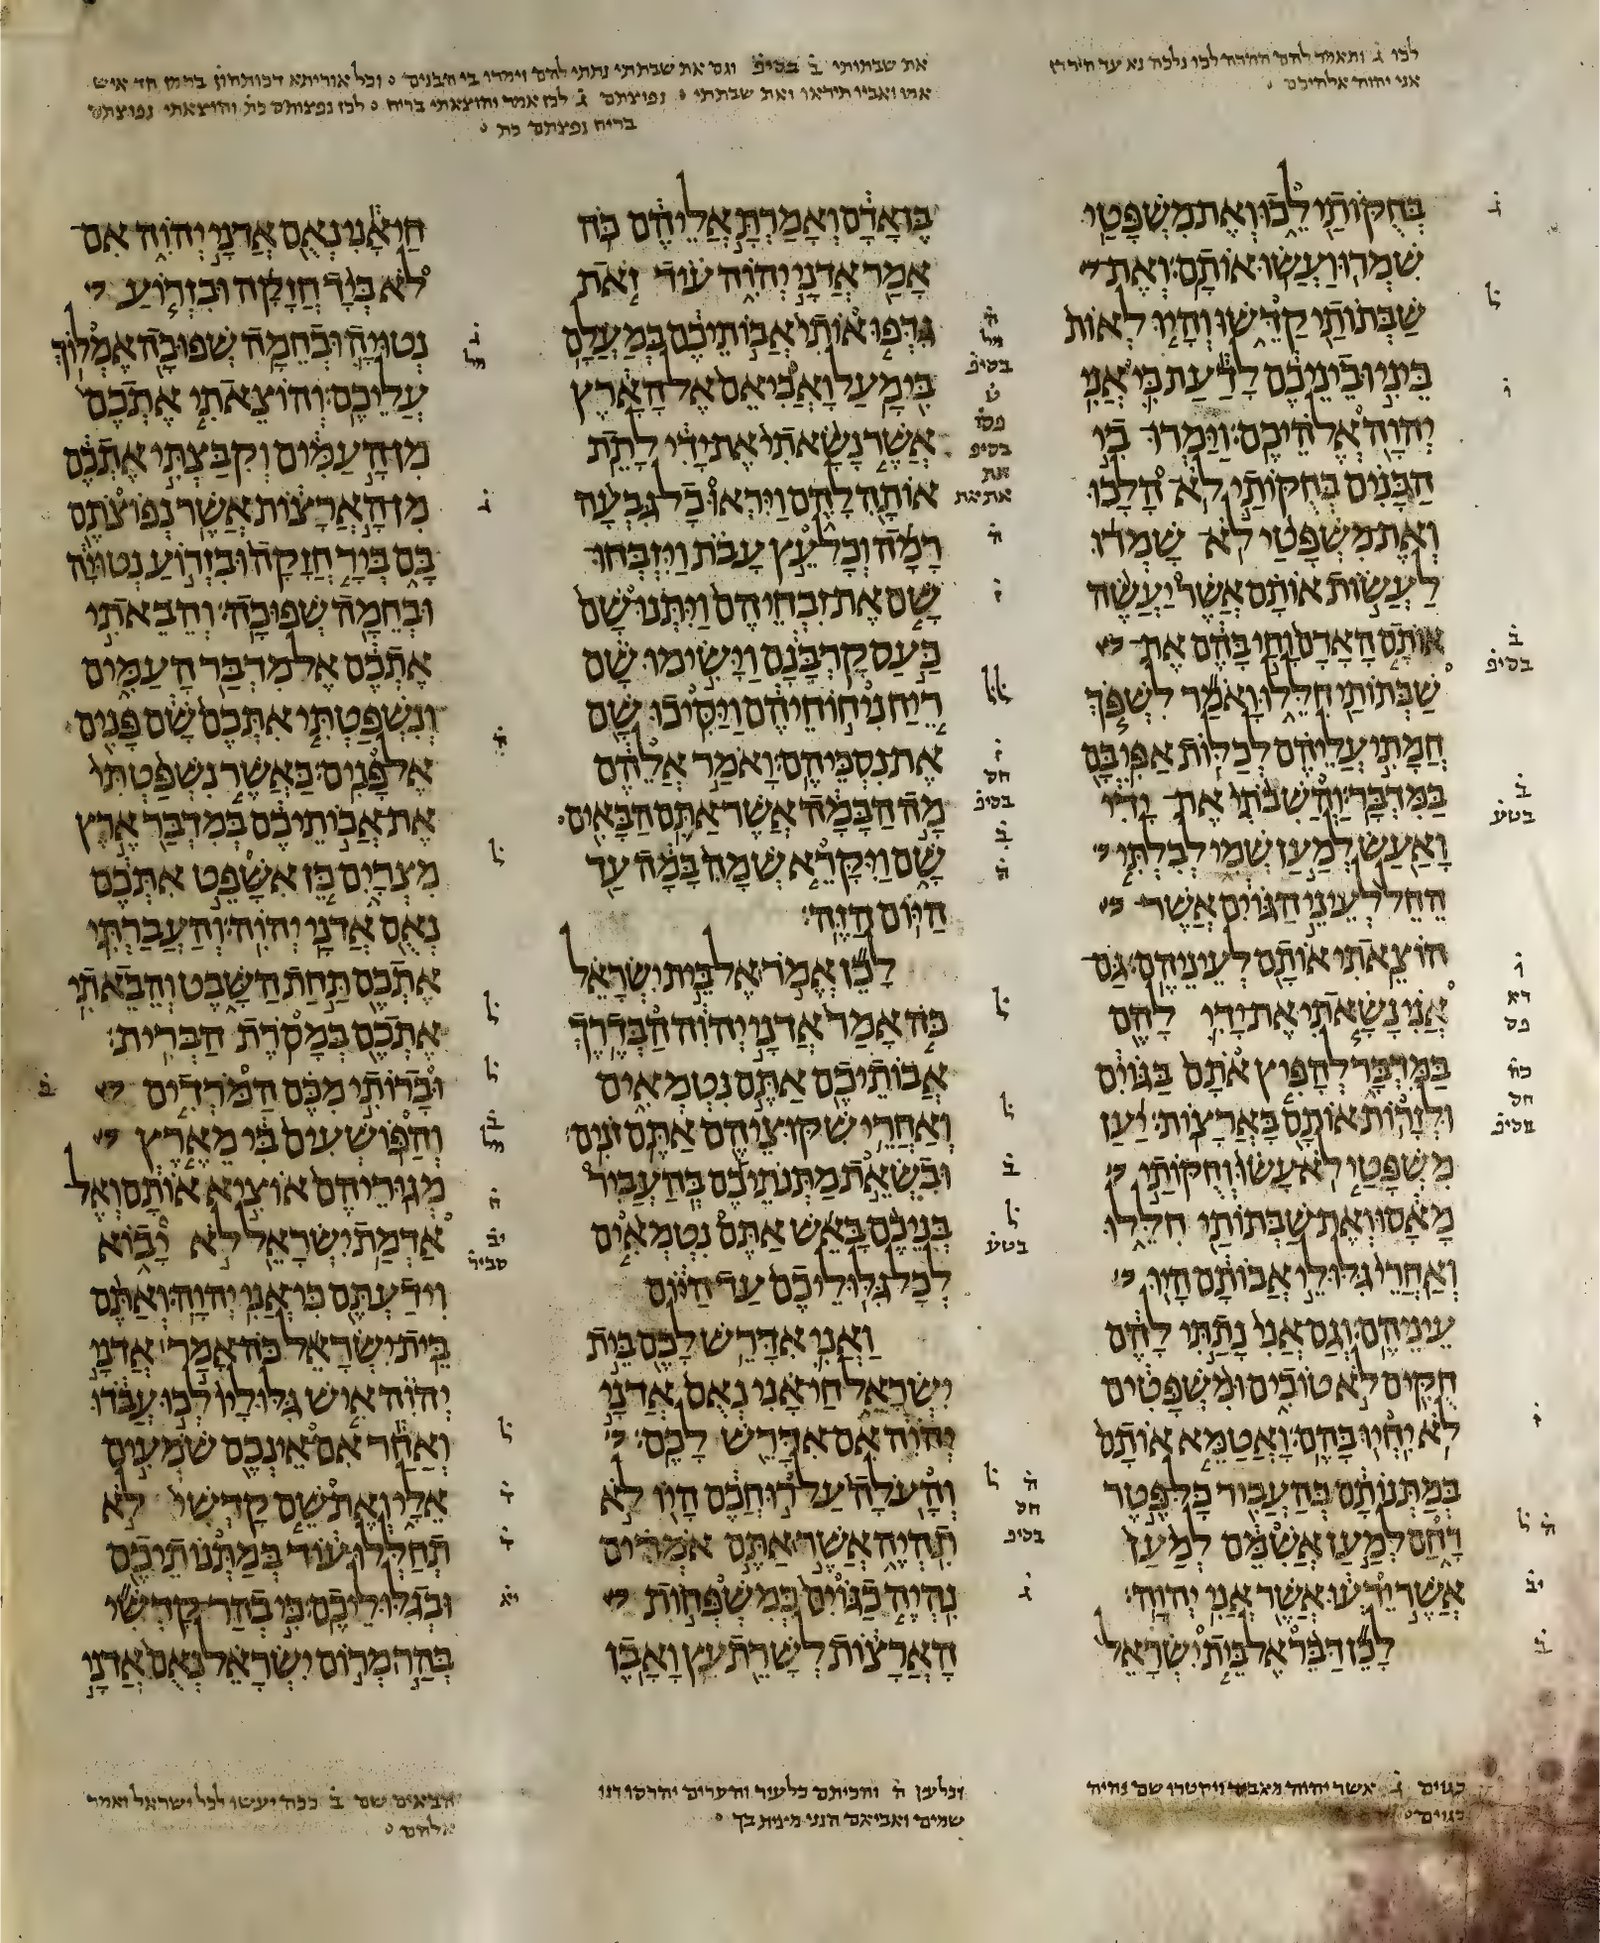 לכו ג ותאמר להם לכו נלכה נא עד
אני יהוה אלהיכם
את שבתותי ב בסיפ וגם את שבתתי נתתי להם וימרו בי הבנים וכל אוריתא דכותהון איש
אמו ואביו תיראו ואת שבתתי נפוצתם ג לכן אמר והוצאתי ברית לכן נפצותם כת והוצאתי נפוצתם
ברית נפצתם כת
בחקותי לכו ואת משפטי
שמרו ועשו אותם ואת
שבתותי קדשו והיו לאות
ביני וביניכם לדעת כי אני
יהוה אלהיכם וימרו בי
הבנים בחקותי לא הלכו
ואת משפטי לא שמרו
לעשות אותם אשר יעשה
אותם האדם וחי בהם את
שבתותי חללו ואמר לשפך
חמתי עליהם לכלות אפי בם
במדבר והשבתי את ידי
ואעש למען שמי לבלתי
החל לעיני הגוים אשר
הוצאתי אותם לעיניהם גם
אני נשאתי את ידי להם
במדבר להפיץ אתם בגוים
ולזרות אותם בארצות יען
משפטי לא עשו וחקותי
מאסו ואת שבתותי חללו
ואחרי גלולי אבותם היו
עיניהם וגם אני נתתי להם
חקים לא טובים ומשפטים
לא יחיו בהם ואטמא אותם
במתנותם בהעביר כל פטר
רחם למען אשמם למען
אשר ידעו אשר אני יהוה
לכן דבר אל בית ישראל
ג
ל
ו
ב
בסיפ
ב
בטע
ו
דא
פס
כת
חס
בסיפ
ז
ה ל
יב
ב
בן אדם ואמרת אליהם כה
אמר אדני יהוה עוד זאת
גדפו אותי אבותיכם במעלם
בי מעל ואביאם אל הארץ
אשר נשאתי את ידי לתת
אותה להם ויראו כל גבעה
רמה וכל עץ עבת ויזבחו
שם את זבחיהם ויתנו שם
כעס קרבנם וישימו שם
ריח ניחוחיהם ויסיכו שם
את נסכיהם ואמר אלהם
מה הבמה אשר אתם הבאים
שם ויקרא שמה במה עד
היום הזה
לכן אמר אל בית ישראל
כה אמר אדני יהוה הבדרך
אבותיכם אתם נטמאים
ואחרי שקוציהם אתם זנים
ובשאת מתנתיכם בהעביר
בניכם באש אתם נטמאים
לכל גלוליכם עד היום
ואני אדרש לכם בית
ישראל חי אני נאם אדני
יהוה אם אדרש לכם
והעלה על רוחכם היו לא
תהיה אשר אתם אמרים
נהיה כגוים כמשפחות
הארצות לשרת עץ ואבן
ה
מל
בסיפ
ט
פסו
בסיפ
את
את את
ה
ז
ל ל
ז
חס
בסיפ
ב
ה
ל
ל
ב
ל
בטע
ל ה
חס
בסיפ
ג
חי אני נאם אדני יהוה אם
לא ביד חזקה ובזרוע
נטויה ובחמה שפוכה אמלוך
עליכם והוצאתי אתכם
מן העמים וקבצתי אתכם
מן הארצות אשר נפוצתם
בם ביד חזקה ובזרוע נטויה
ובחמה שפוכה והבאתי
אתכם אל מדבר העמים
ונשפטתי אתכם שם פנים
אל פנים כאשר נשפטתי
את אבותיכם במדבר ארץ
מצרים כן אשפט אתכם
נאם אדני יהוה והעברתי
אתכם תחת השבט והבאתי
אתכם במסרת הברית
וברותי מכם המרדים
והפושעים בי מארץ
מגוריהם אוציא אותם ואל
אדמת ישראל לא יבוא
וידעתם כי אני יהוה ואתם
בית ישראל כה אמר אדני
יהוה איש גלוליו לכו עבדו
ואחר אם אינכם שמעים
אלי ואת שם קדשי לא
תחללו עוד במתנותיכם
ובגלוליכם כי בהר קדשי
בהר מרום ישראל נאם אדני
ג
מל
ג
ה
ל
ל
ל
ב
ב
מל
ה
יב
סביר
ל
ד
ד
יא
כגוים ג אשר יהוה מאבד ויקטרו שם נהיה
כגוים
וכל עץ ה והכיתם כל עיר והערים יהרסו רנו
שמים ואביאם הנני מימת בך
הבאים שם ב ככה יעשו לכל ישראל ואמר
אלהם